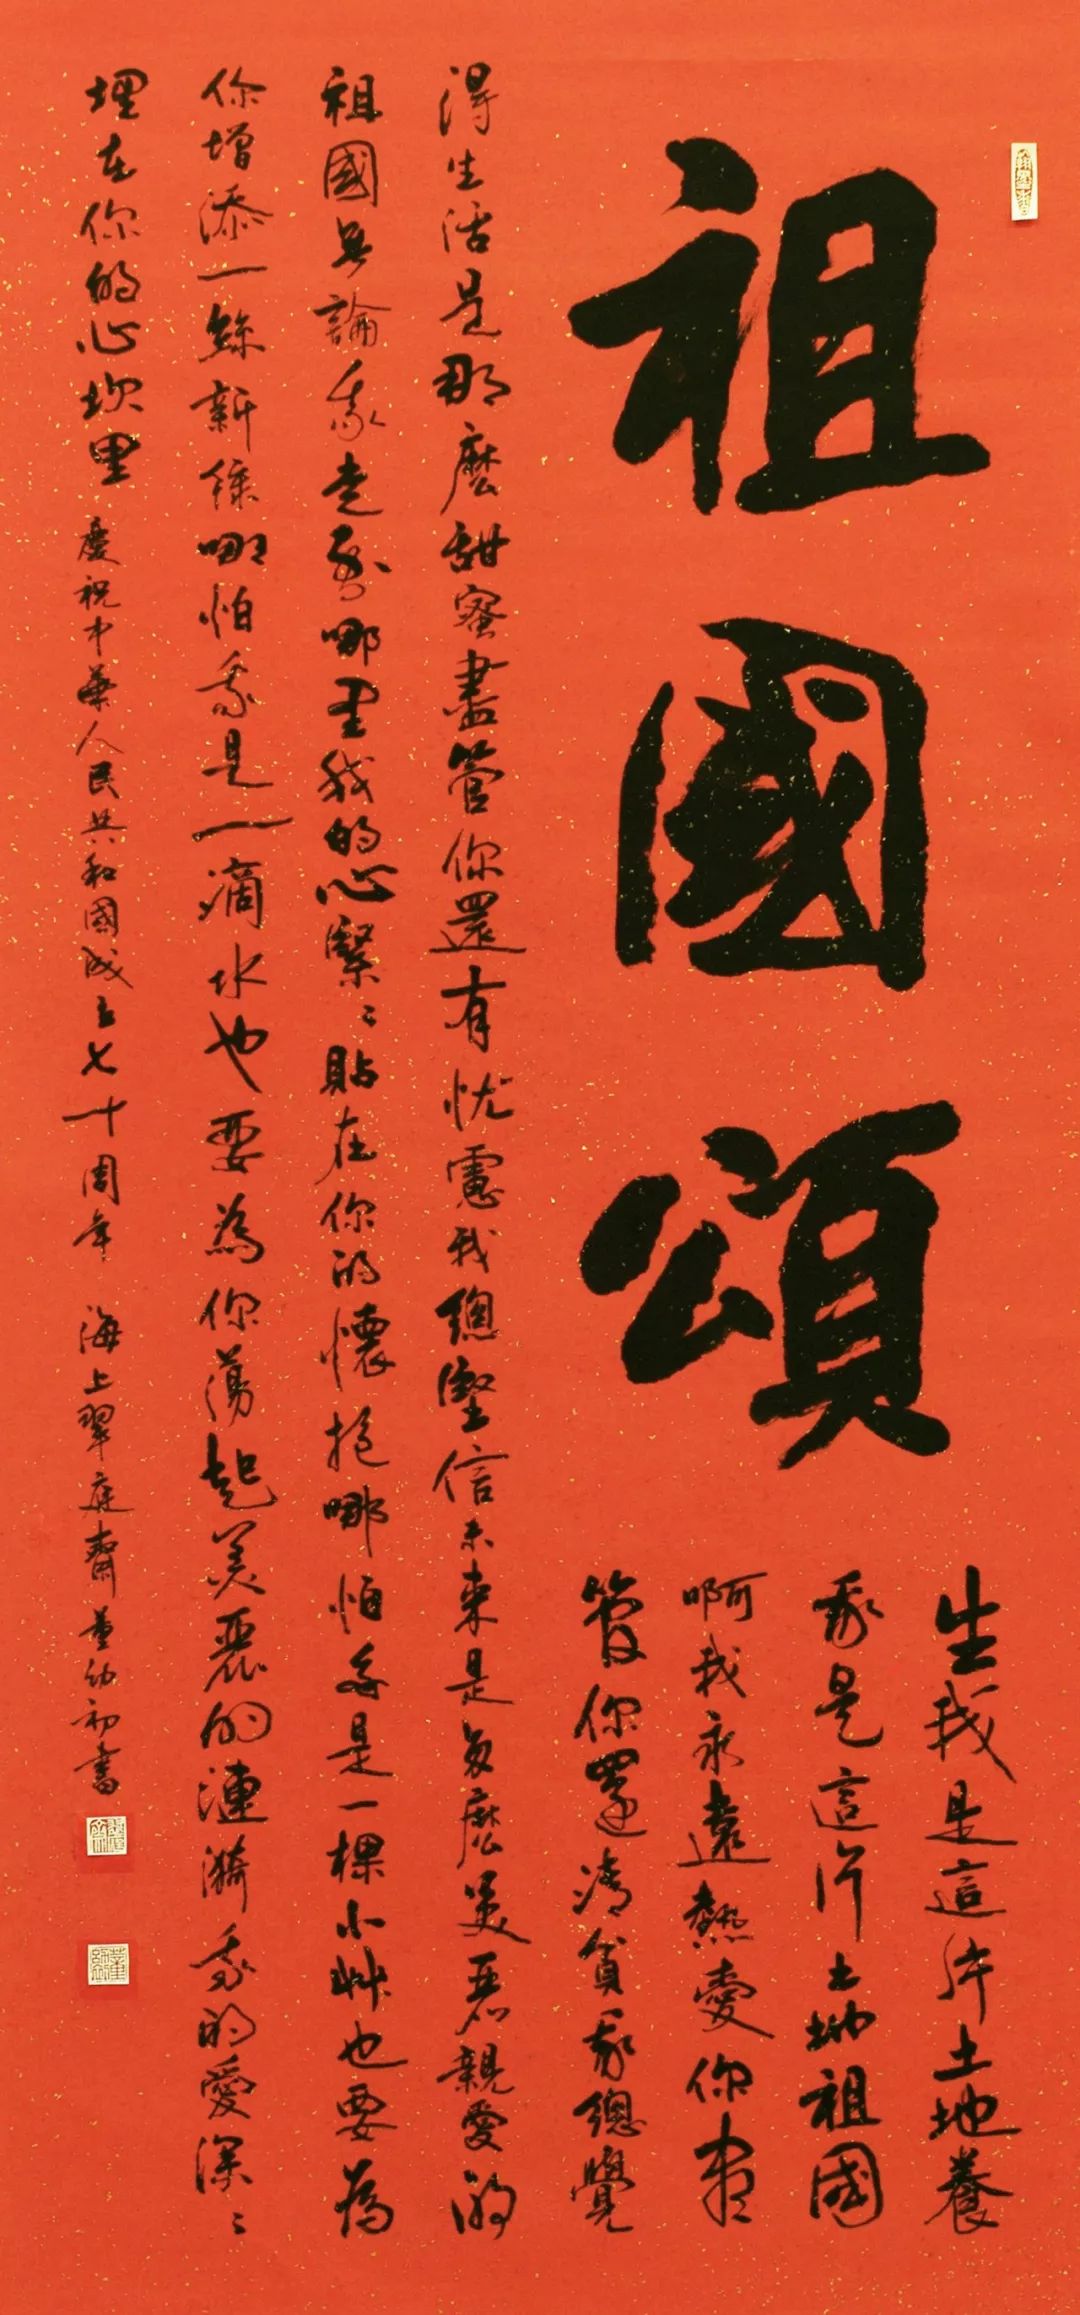 祖國頌
生我是這片土地養
我是這片土地祖國
啊我永遠熱愛你盡
管你還清貧我總覺
得生活是那麼甜蜜盡管你還有忧慮我總堅信未來是多麼美麗親愛的
祖國無論我走到哪里我的心緊〻貼在你的懷抱哪怕我是一棵小艸也要為
你增添一絲新綠哪怕我是一滴水也要為你蕩起美麗的漣漪我的愛深〻
埋在你的心坎里 慶祝中華人民共和國成立七十周年 海上翠庭齋董幼初書